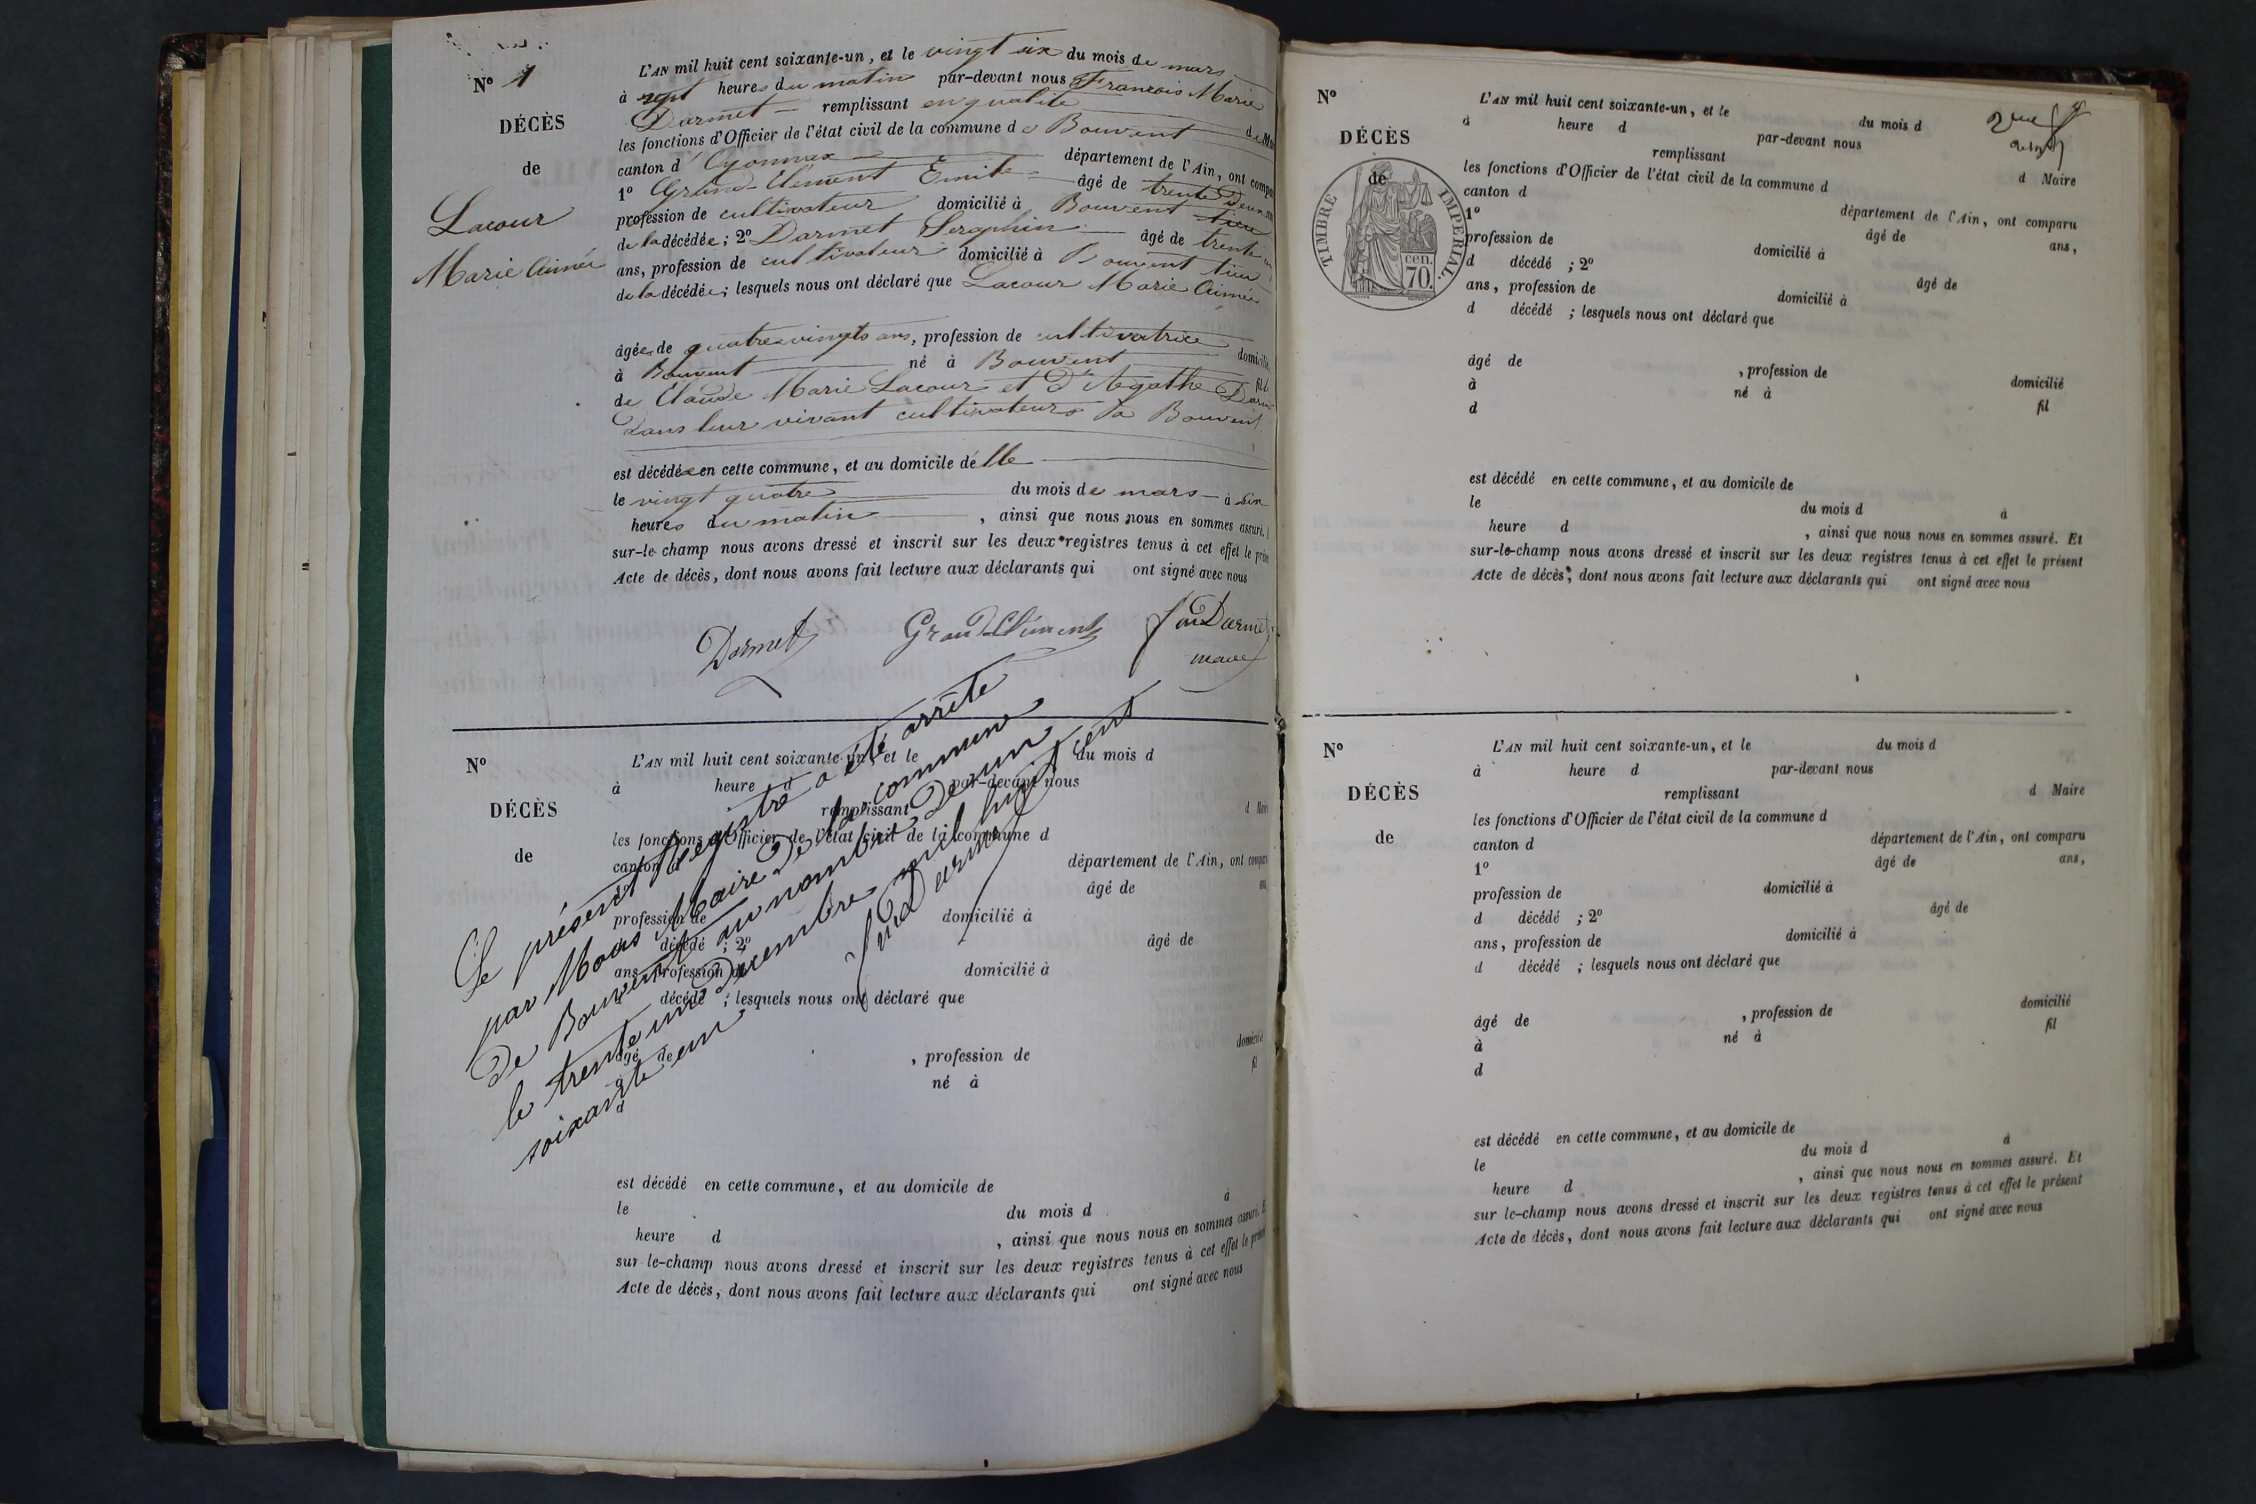 N° 1
DÉCÈS
de
Lacour
Marie Aimée
L'AN mil huit cent soixante-un, et le vingt six du mois de mars
à sept heures du matin par-devant nous François Marie
Darmet remplissant en qualité de M
les fonctions d'Officier de l'état civil de la commune de Bouvent
canton d'Oyonnax département de l'Ain, ont compa
1° Grand-Clément Emile âgé de trente deux
profession de cultivateur domicilié à Bouvent
de la décédée; 2° Darmet Seraphin âgé de trente
ans, profession de cultivateur domicilié à Bouvent
de la décédée; lesquels nous ont déclaré que Lacour Marie Aimée
âgée de quatre-vingts ans, profession de cultivatrice domicilié
à Bouvent né à Bouvent fil
de Claude Marie Lacour et d'Agathe Darm
dans leur vivant cultivateurs à Bouvent
est décédée en cette commune, et au domicile d'elle
le vingt quatre du mois de mars à six
heures du matin, ainsi que nous nous en sommes assuré.
sur-le-champ nous avons dressé et inscrit sur les deux registres tenus à cet effet le prése
Acte de décès, dont nous avons fait lecture aux déclarants qui ont signé avec nous
Darmet GrandClément Darmet
maire
N°
DÉCÈS
de
L'AN mil huit cent soixante-un, et le du mois d
à heure d par-devant nous
remplissant d Maire
les fonctions d'Officier de l'état civil de la commune d
canton d département de l'Ain, ont comparu
1° âgé de ans
profession de domicilié à
d décédé ; 2° âgé de
ans, profession de domicilié à
d décédé ; lesquels nous ont déclaré que
âgé de , profession de domicilié
à né à fil
d
est décédé en cette commune, et au domicile de
le du mois d à
heure d , ainsi que nous nous en sommes assuré. E
sur-le-champ nous avons dressé et inscrit sur les deux registres tenus à cet effet le présent
Acte de décès, dont nous avons fait lecture aux déclarants qui ont signé avec nous
Le présent Registre a été arrêté
par Nous Maire de la commune
de Bouvent au nombre de un
le trente un décembre mil huit cent
soixante un
Darmet
N°
DÉCÈS
de
TIMBRE IMPERIAL.
cen.
70.
L'AN mil huit cent soixante-un, et le du mois d
à heure d par-devant nous
remplissant d Maire
les fonctions d'Officier de l'état civil de la commune d
canton d département de l'Ain, ont comparu
1° âgé de ans,
profession de domicilié à
d décédé ; 2° âgé de
ans, profession de domicilié à
d décédé ; lesquels nous ont déclaré que
âgé de , profession de domicilié
à né à fil
d
est décédé en cette commune, et au domicile de
le du mois d à
heure d , ainsi que nous nous en sommes assuré. Et
sur-le-champ nous avons dressé et inscrit sur les deux registres tenus à cet effet le présent
Acte de décès, dont nous avons fait lecture aux déclarants qui ont signé avec nous
N°
DÉCÈS
de
L'AN mil huit cent soixante-un, et le du mois d
à heure d par-devant nous
remplissant d Maire
les fonctions d'Officier de l'état civil de la commune d
canton d département de l'Ain, ont comparu
1° âgé de ans,
profession de domicilié à
d décédé ; 2° âgé de
ans, profession de domicilié à
d décédé ; lesquels nous ont déclaré que
âgé de , profession de domicilié
à né à fil
d
est décédé en cette commune, et au domicile de
le du mois d à
heure d , ainsi que nous nous en sommes assuré. Et
sur le-champ nous avons dressé et inscrit sur les deux registres tenus à cet effet le présent
Acte de décès, dont nous avons fait lecture aux déclarants qui ont signé avec nous